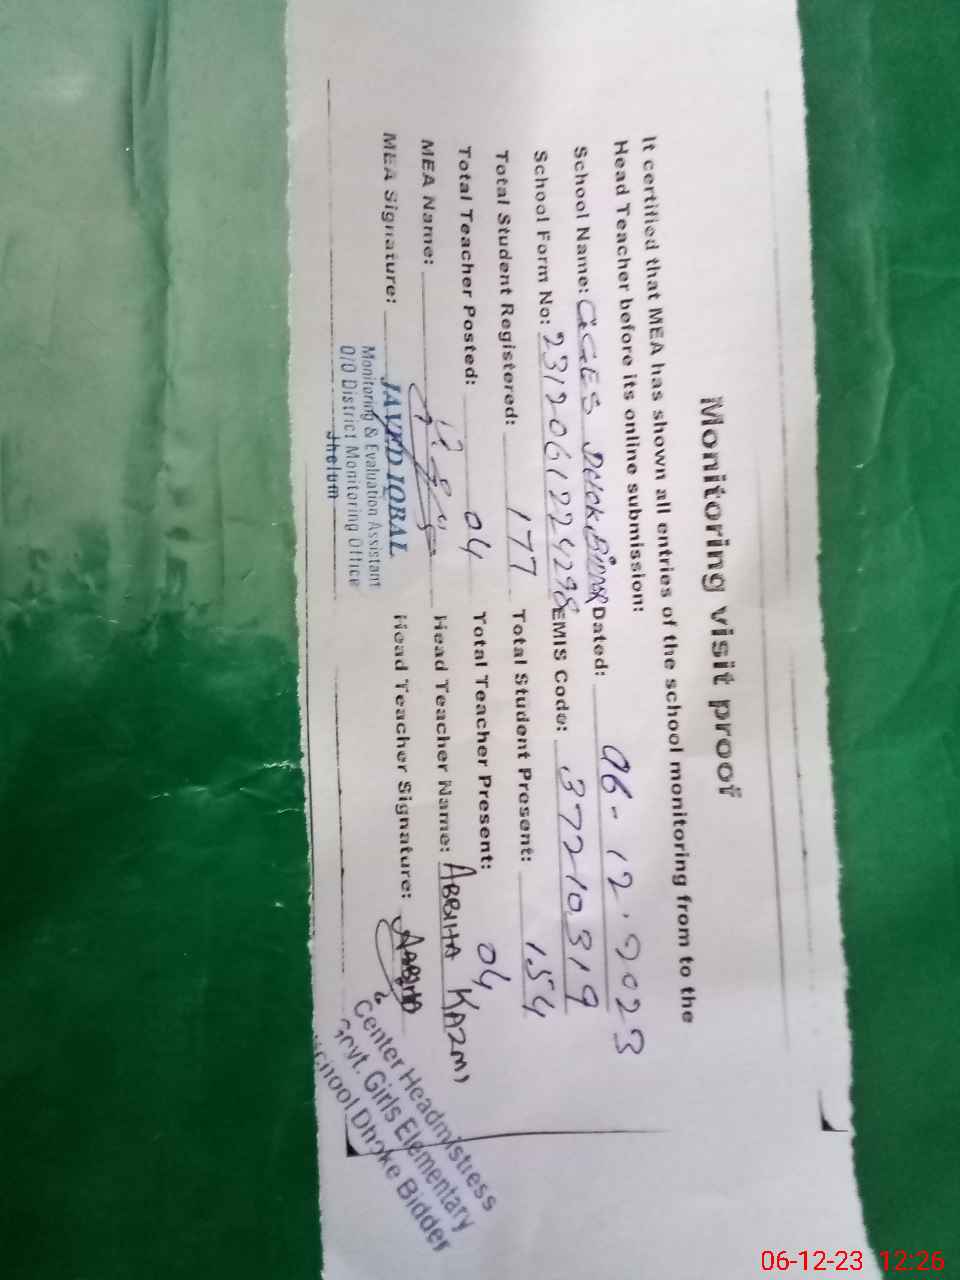 Monitoring visit proof
It certified that MEA has shown all entries of the school monitoring from to the
Head Teacher before its online submission:
School Name: GGES DHOK BIDDER Dated: 06-12-2023
School Form No: 2312061224298 EMIS Code: 37210319
Total Student Registered: 177 Total Student Present: 154
Total Teacher Posted: 04 Total Teacher Present: 04
MEA Name: Head Teacher Name: ABBIHA KAZMI
MEA Signature: JAVED IQBAL Head Teacher Signature:
Monitoring & Evaluation Assistant
O/O District Monitoring Office
Jhelum
Center Headmistress
Govt. Girls Elementary
School Dhoke Bidder
06-12-23 12:26